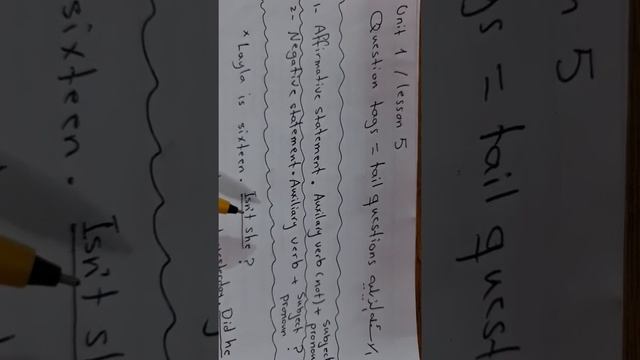 Unit 1 / lesson 5
Question tags = tail questions
1- Affirmative statement . Auxilary verb (not) + subject pronoun
2- Negative statement . Auxiliary verb + subject pronoun ?
* Layla is sixteen. Isn't she ?
yesterday. Did he